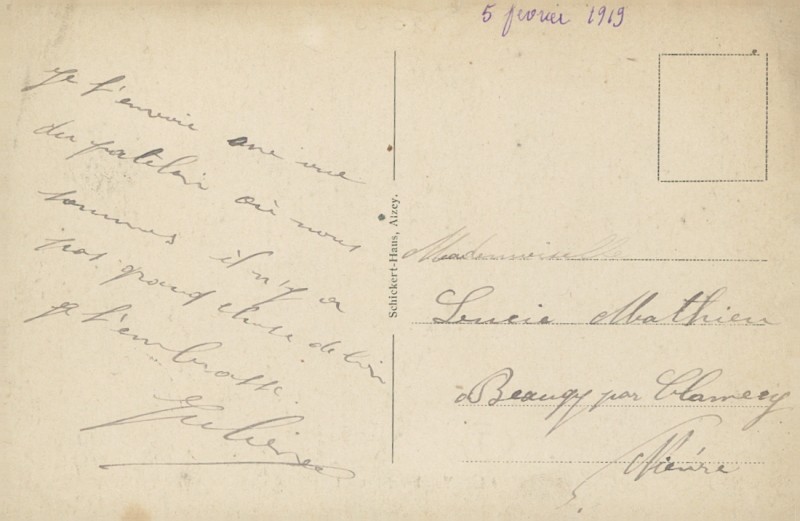 5 février 1919
Je t'envoie une vue
du patelin où nous
sommes il n'y a
pas grand chose de bien
Je t'embrasse.
Schickert-Haus, Alzey.
Mademoiselle
Lucie Mathieu
à Beaugy par Clamecy
Nièvre